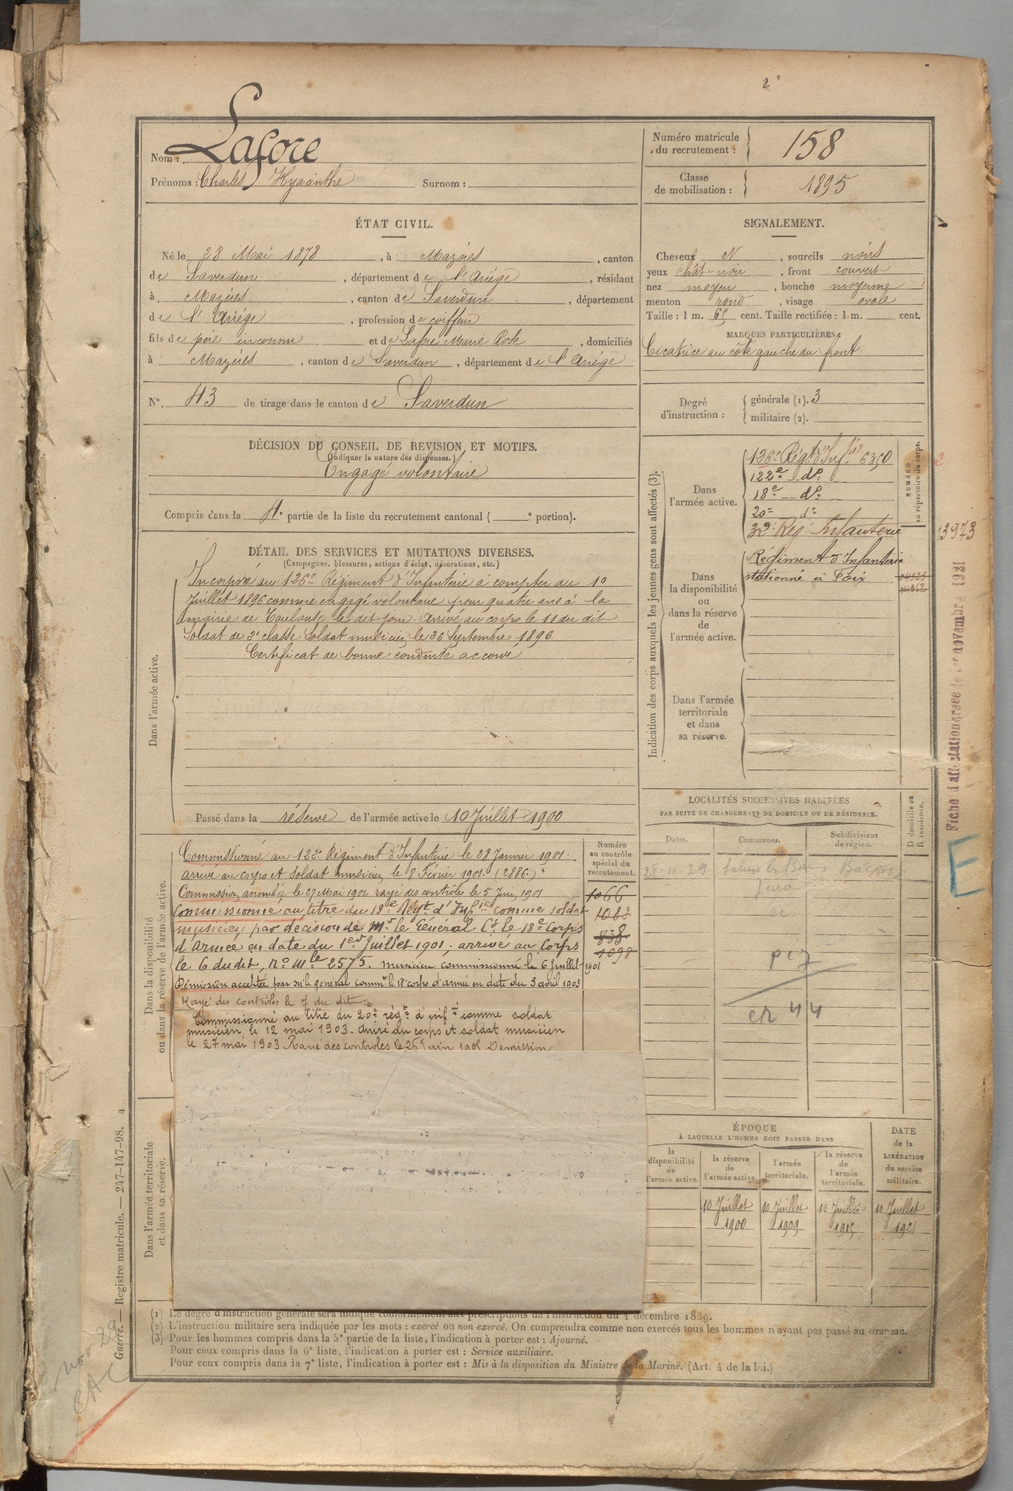 Nom : Lafore
Prénoms : Charles Hyacinthe Surnom :
Numéro matricule du recrutement : 158
Classe de mobilisation : 1895
ÉTAT CIVIL.
Né le 28 Mai 1878, à Mazères, canton
de Saverdun, département de l'Ariège, résidant
à Mazères, canton de Saverdun, département
de l'Ariège, profession de coiffeur
fils de père inconnu et de Lafore Marie Rose, domiciliés
à Mazères, canton de Saverdun, département de l'Ariège
N°. 43 de tirage dans le canton de Saverdun
SIGNALEMENT.
Cheveux N, sourcils noirs
yeux chât-noir, front couvert
nez moyen, bouche moyenne
menton rond, visage ovale
Taille : 1 m. 65 cent. Taille rectifiée : 1 m. cent.
MARQUES PARTICULIÈRES :
Cicatrice au côté gauche du front
Degré d'instruction : générale (1). 3
militaire (2).
DÉCISION DU CONSEIL DE REVISION ET MOTIFS.
(Indiquer la nature des dispenses.)
Engagé volontaire
Compris dans la 4e partie de la liste du recrutement cantonal ( e portion).
Indication des corps auxquels les jeunes gens sont affectés (3).
Dans l'armée active.
126e Régt d'Infie 6350
122e do
18e do
20e do
32e Rég Infanterie
NUMÉRO au répertoire du corps.
13973
Dans la disponibilité ou dans la réserve de l'armée active.
Régiment d'Infanterie
stationné à Foix
Dans l'armée territoriale et dans sa réserve.
DÉTAIL DES SERVICES ET MUTATIONS DIVERSES.
(Campagnes, blessures, actions d'éclat, décorations, etc.)
Dans l'armée active.
Incorporé au 126e Régiment d'Infanterie à compter du 10
Juillet 1896 comme engagé volontaire pour quatre ans à la
mairie de Toulouse le dit jour. Arrivé au corps le 11 du dit
Soldat de 2e classe. Soldat musicien le 26 Septembre 1896
Certificat de bonne conduite accordé
Passé dans la réserve de l'armée active le 10 Juillet 1900
Dans la disponibilité ou dans la réserve de l'armée active.
Numéro au contrôle spécial du recrutement.
Commissionné au 122e Régiment d'Infanterie le 28 Janvier 1901.
arrivé au corps et soldat musicien le 8 Février 1901 (2886)
Commission annulée le 27 Mai 1901 rayé des contrôles le 5 Juin 1901
Commissionné au titre du 18e Régt d'Infie comme soldat
musicien par décision de Mr le Général Ct le 18e Corps
d'Armée en date du 1er Juillet 1901. arrivé au Corps
le 6 du dit, no mle 2575. musicien commissionné le 6 juillet 1901
Démission acceptée par M le général commt le 18e corps d'armée en date du 3 août 1903
Rayé des contrôles le 7 du dit
Commissionné au titre du 20e régt d'infie comme soldat
musicien, le 12 mai 1903. arrivé au corps et soldat musicien
le 27 mai 1903
1066
1042
838
LOCALITÉS SUCCESSIVES HABITÉES
PAR SUITE DE CHANGEMENTS DE DOMICILE OU DE RÉSIDENCE.
Dates. Communes. Subdivisions de région. D domicile ou R résidence.
Jura
Fiche d'affectation créée le novembre 1921
E
Dans l'armée territoriale et dans sa réserve.
ÉPOQUE
À LAQUELLE L'HOMME DOIT PASSER DANS
la disponibilité de l'armée active.
la réserve de l'armée active.
l'armée territoriale.
la réserve de l'armée territoriale.
DATE de la LIBÉRATION du service militaire.
10 Juillet 1900
10 Juillet 1909
10 Juillet 1915
10 Juillet 1921
(2) L'instruction militaire sera indiquée par les mots : exercé ou non exercé. On comprendra comme non exercés tous les hommes n'ayant pas passé au drapeau.
(3) Pour les hommes compris dans la 5e partie de la liste, l'indication à porter est : Ajourné.
Pour ceux compris dans la 6e liste, l'indication à porter est : Service auxiliaire.
Pour ceux compris dans la 7e liste, l'indication à porter est : Mis à la disposition du Ministre de la Marine. (Art. 4 de la loi.)
Guerre. — Registre matricule. — 247-147-98.